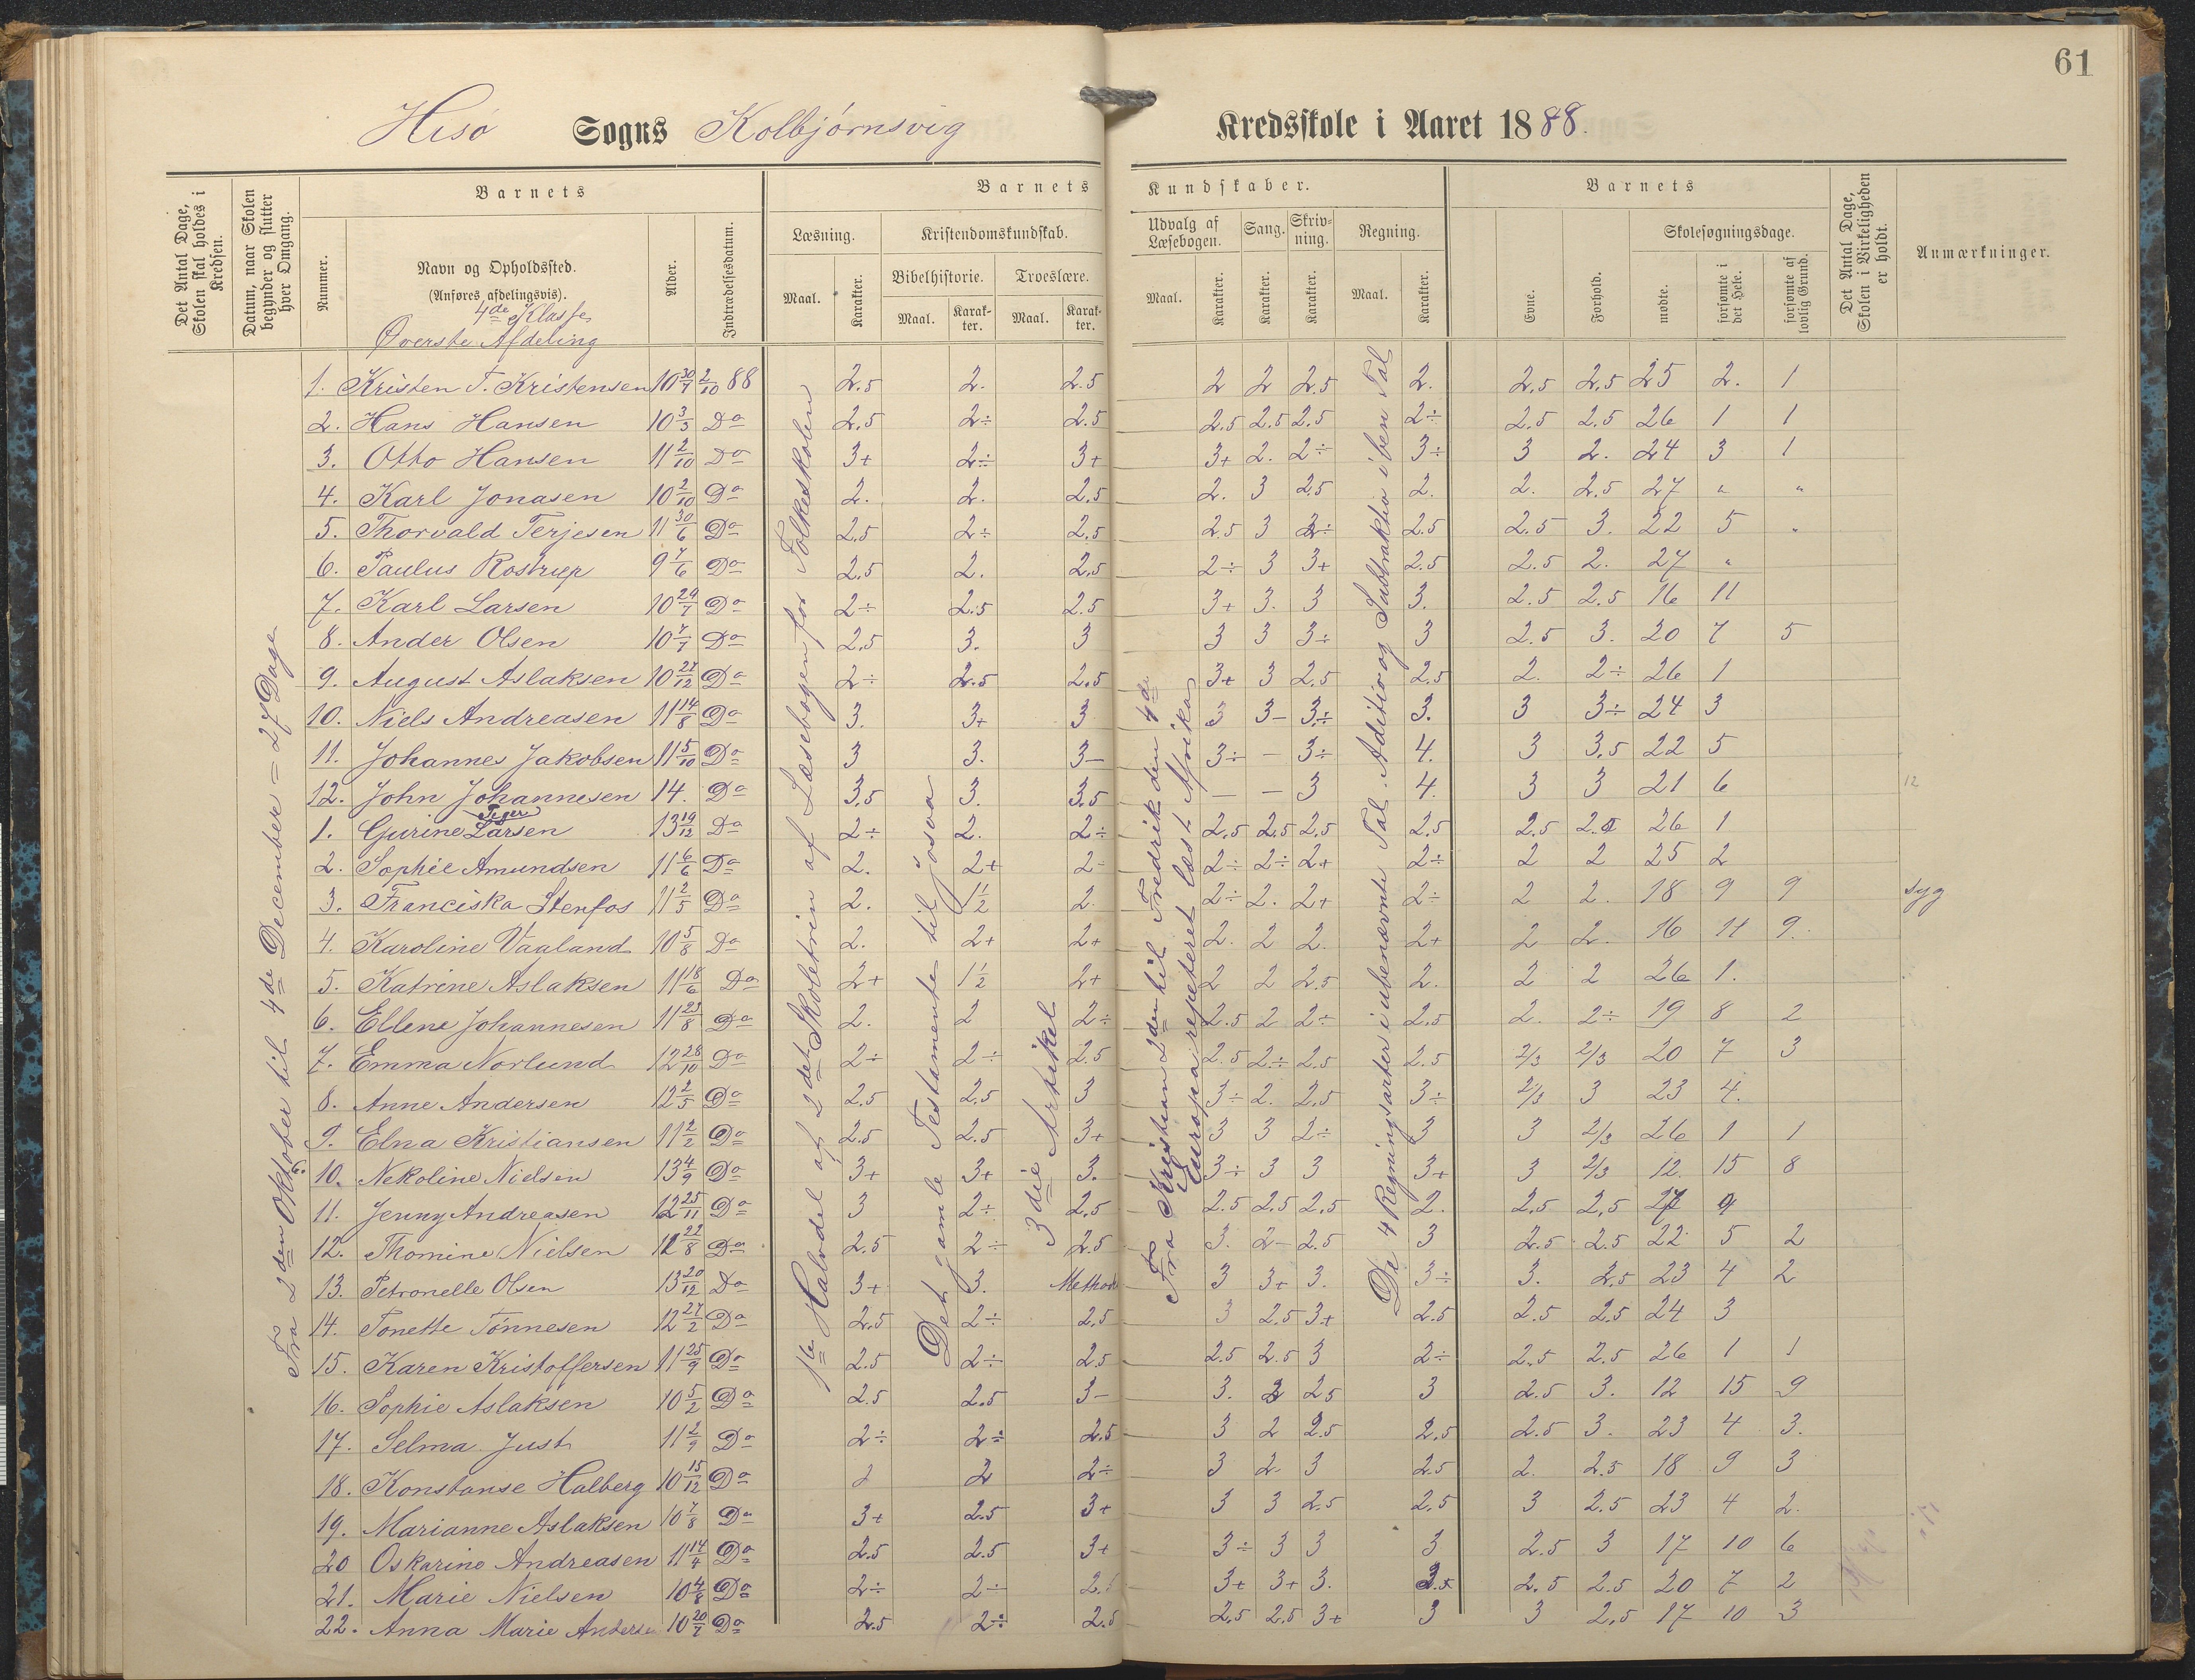 61
Hisö Sogns Kolbjørnsvig Kredsskole i Aaret 1888.
Det Antal Dage, Skolen skal holdes i Kredsen.
Datum, naar Skolen begynder og slutter hver Omgang.
Barnets
Nummer.
Navn og Opholdssted.
(Anføres afdelingsvis).
4de Klasse
Øverste Afdeling
Alder.
Indtrædelsesdatum.
Barnets Kundskaber.
Læsning.
Maal.
Karakter.
Kristendomskundskab.
Bibelhistorie.
Maal.
Karakter.
Troeslære.
Maal.
Karakter.
Udvalg af Læsebogen.
Maal.
Karakter.
Sang.
Karakter.
Skrivning.
Karakter.
Regning.
Maal.
Karakter.
Barnets
Evne.
Forhold.
Skolesøgningsdage.
mødte.
forsømte i det Hele.
forsømte af lovlig Grund.
Det Antal Dage, Skolen i Virkeligheden er holdt.
Anmærkninger.
Fra 2den Oktober til 4de December = 27 Dage
1ste Halvdel af 2det Skoletrin af Læsebogen for Folkeskolen
Det gamle Testamente til Josva
3die Artikel
Fra Kristian 2den til Fredrik den 4de
Europa repeteret læst Afrika
De 4 Regningsarter i ubenævnte Tal. Aditio og Subtraktio i ben Tal
1. Kristen T. Kristensen 10 30/7 2/10 88 2.5 2. 2.5 2 2 2.5 2. 2.5 2.5 25 2. 1
2. Hans Hansen 10 3/3 Do 2.5 2÷ 2.5 2.5 2.5 2.5 2÷ 2.5 2.5 26 1 1
3. Otto Hansen 11 2/10 Do 3+ 2÷ 3+ 3+ 2. 2÷ 3÷ 3 2. 24 3 1
4. Karl Jonasen 10 2/10 Do 2. 2. 2.5 2. 3 2.5 2. 2. 2.5 27 " "
5. Thorvald Terjesen 11 30/6 Do 2.5 2÷ 2.5 2.5 3 2÷ 2.5 2.5 3. 22 5 "
6. Paulus Rostrup 9 7/6 Do 2.5 2. 2.5 2÷ 3 3+ 2.5 2.5 2. 27 "
7. Karl Larsen 10 29/7 Do 2÷ 2.5 2.5 3+ 3. 3 3. 2.5 2.5 16 11
8. Ander Olsen 10 7/7 Do 2.5 3. 3 3 3 3÷ 3 2.5 3. 20 7 5
9. August Aslaksen 10 27/12 Do 2÷ 2.5 2.5 3+ 3 2.5 2.5 2. 2÷ 26 1
10. Niels Andreasen 11 14/8 Do 3. 3+ 3 3 3- 3÷ 3. 3 3÷ 24 3
11. Johannes Jakobsen 11 5/10 Do 3 3. 3- 3÷ - 3÷ 4. 3 3.5 22 5
12. John Johannesen 14. Do 3.5 3. 3.5 - - 3 4. 3 3 21 6 12
Piger
1. Gurine Larsen 13 19/12 Do 2÷ 2. 2÷ 2.5 2.5 2.5 2.5 2.5 26 1
2. Sophie Amundsen 11 6/6 Do 2. 2+ 2- 2÷ 2÷ 2+ 2÷ 2 2 25 2
3. Franciska Stenfos 11 2/5 Do 2. 1½ 2. 2÷ 2. 2+ 2÷ 2 2. 18 9 9 syg
4. Karoline Vagland 10 5/8 Do 2. 2+ 2+ 2. 2 2. 2+ 2 2. 16 11 9.
5. Katrine Aslaksen 11 18/6 Do 2+ 1½ 2+ 2 2 2.5 2. 2 2 26 1.
6. Ellene Johannesen 11 23/8 Do 2. 2 2÷ 2.5 2 2÷ 2.5 2. 2÷ 19 8 2
7. Emma Norlund 12 28/10 Do 2÷ 2÷ 2.5 2.5 2÷ 2.5 2.5 2/3 2/3 20 7 3
8. Anne Andersen 12 2/5 Do 2.5 2.5 3 3÷ 2. 2.5 3÷ 2/3 3 23 4.
9. Elna Kristiansen 11 2/2 Do 2.5 2.5 3+ 3 3 2÷ 3 3 2/3 26 1 1
10. Nekoline Nielsen 13 4/9 Do 3+ 3+ 3. 3÷ 3 3 3+ 3 2/3 12. 15 8
11. Jenny Andreasen 12 25/11 Do 3 2÷ 2.5 2.5 2.5 2.5 2. 2.5 2.5 27
12. Thomine Nielsen 11 22/8 Do 2.5 2÷ 2.5 3. 2- 2.5 3 2.5 2.5 22 5 2
13. Petronelle Olsen 13 20/12 Do 3+ 3. Method 3 3+ 3. 3÷ 3. 2.5 23 4 2
14. Tonette Tönnesen 12 27/2 Do 2.5 2÷ 2.5 3 2.5 3+ 2.5 2.5 2.5 24 3
15. Karen Kristoffersen 11 25/9 Do 2.5 2÷ 2.5 2.5 2.5 3 2÷ 2.5 2.5 26 1 1
16. Sophie Aslaksen 10 5/2 Do 2.5 2.5 3- 3. 2 2.5 3 2.5 3. 12 15 9
17. Selma Just 11 2/9 Do 2÷ 2÷ 2.5 3 2 2.5 2.5 2.5 3. 23 4 3.
18. Konstanse Halberg 10 15/12 Do 2 2 2÷ 3 2- 3 2.5 2. 2.5 18 9 3
19. Marianne Aslaksen 10 7/8 Do 3+ 2.5 3+ 3 3 2.5 2.5 3 2.5 23 4 2.
20 Oskarine Andreasen 11 14/4 Do 2.5 2.5 3+ 3÷ 3 3 3 2.5 3 17 10 6
21. Marie Nielsen 10 4/8 Do 2÷ 2÷ 2.5 3+ 3+ 3. 3.5 2.5 2.5 20 7 2
22. Anna Marie Anderse 10 20/7 Do 2.5 2÷ 2.5 2.5 2.5 3+ 3 3 2.5 17 10 3